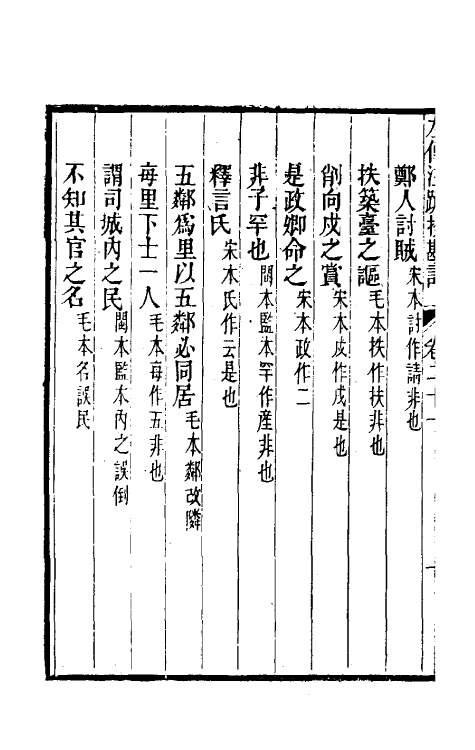 左傳注疏校勘記 卷二十一 十
鄭人討賊宋本討作請非也
抶築臺之謳毛本抶作扶非也
削向戌之賞宋本戌作戍是也
是政卿命之宋本政作二
非子罕也閩本監本罕作產非也
釋言氏宋本氏作云是也
五鄰爲里以五鄰必同居毛本鄰改隣
每里下士一人毛本每作五非也
謂司城內之民閩本監本內之誤倒
不知其官之名毛本名誤民